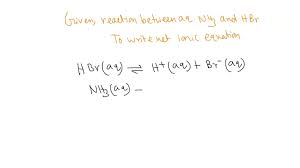 Given, reaction between aq. NH3 and HBr
To write net ionic equation
HBr(aq) ⇌ H⁺(aq) + Br⁻(aq)
NH3(aq) -